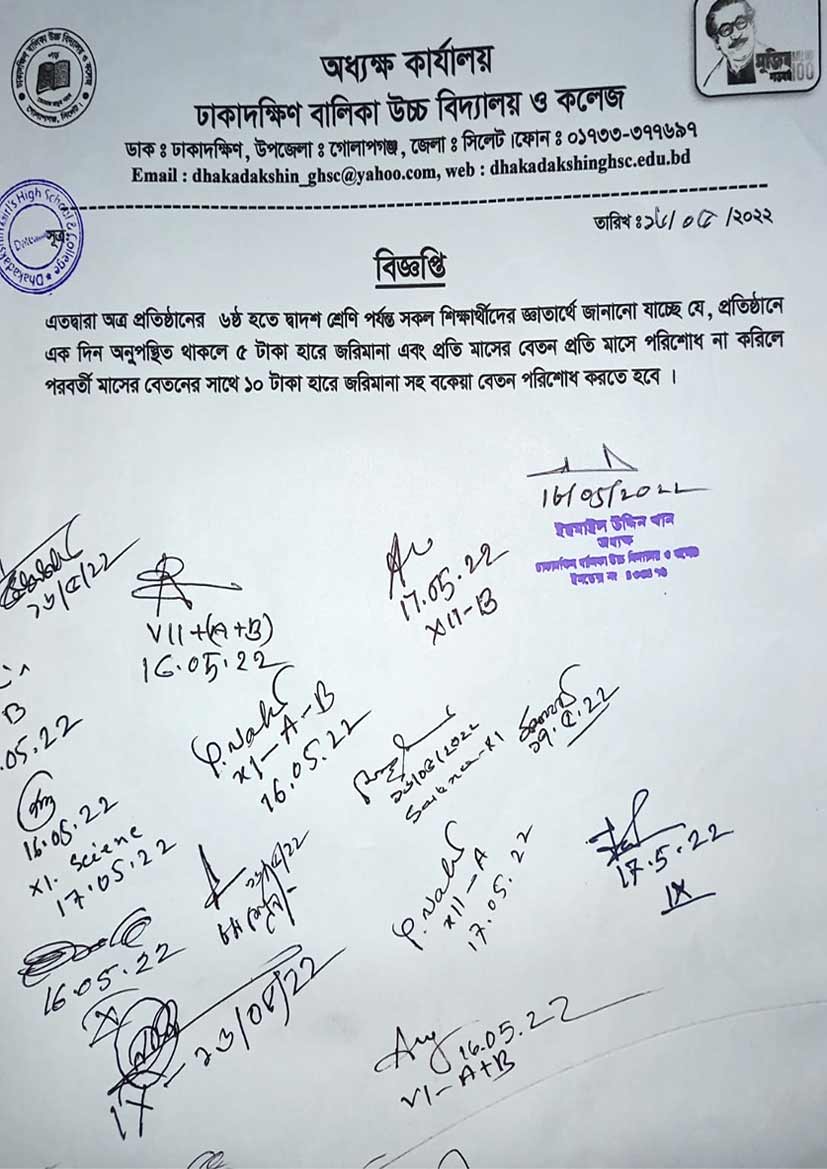 অধ্যক্ষ কার্যালয়
ঢাকাদক্ষিণ বালিকা উচ্চ বিদ্যালয় ও কলেজ
ডাক ঃ ঢাকাদক্ষিণ, উপজেলা ঃ গোলাপগঞ্জ, জেলা ঃ সিলেট ।ফোন ঃ ০১৭৩৩-৩৭৭৬৯৭
Email : dhakadakshin_ghsc@yahoo.com, web : dhakadakshinghsc.edu.bd
মুজিব
100
সূত্র:
তারিখ ঃ ১৬/ ০৫ /২০২২
বিজ্ঞপ্তি
এতদ্বারা অত্র প্রতিষ্ঠানের ৬ষ্ঠ হতে দ্বাদশ শ্রেণি পর্যন্ত সকল শিক্ষার্থীদের জ্ঞাতার্থে জানানো যাচ্ছে যে, প্রতিষ্ঠানে
এক দিন অনুপস্থিত থাকলে ৫ টাকা হারে জরিমানা এবং প্রতি মাসের বেতন প্রতি মাসে পরিশোধ না করিলে
পরবর্তী মাসের বেতনের সাথে ১০ টাকা হারে জরিমানা সহ বকেয়া বেতন পরিশোধ করতে হবে ।
16/05/2022
অধ্যক্ষ
ঢাকাদক্ষিণ বালিকা উচ্চ বিদ্যালয় ও কলেজ
VII+(A+B)
16.05.22
17.05.22
XII-B
B
.05.22
XI-A-B
16.05.22
২৩/০৫/২০২২
Science-XI
16.05.22
XI. Sciene
17.05.22
XII-A
17.05.22
17.5.22
IX
16.05.22
X
IX
২৩/০৫/22
16.05.22
VI-A+B